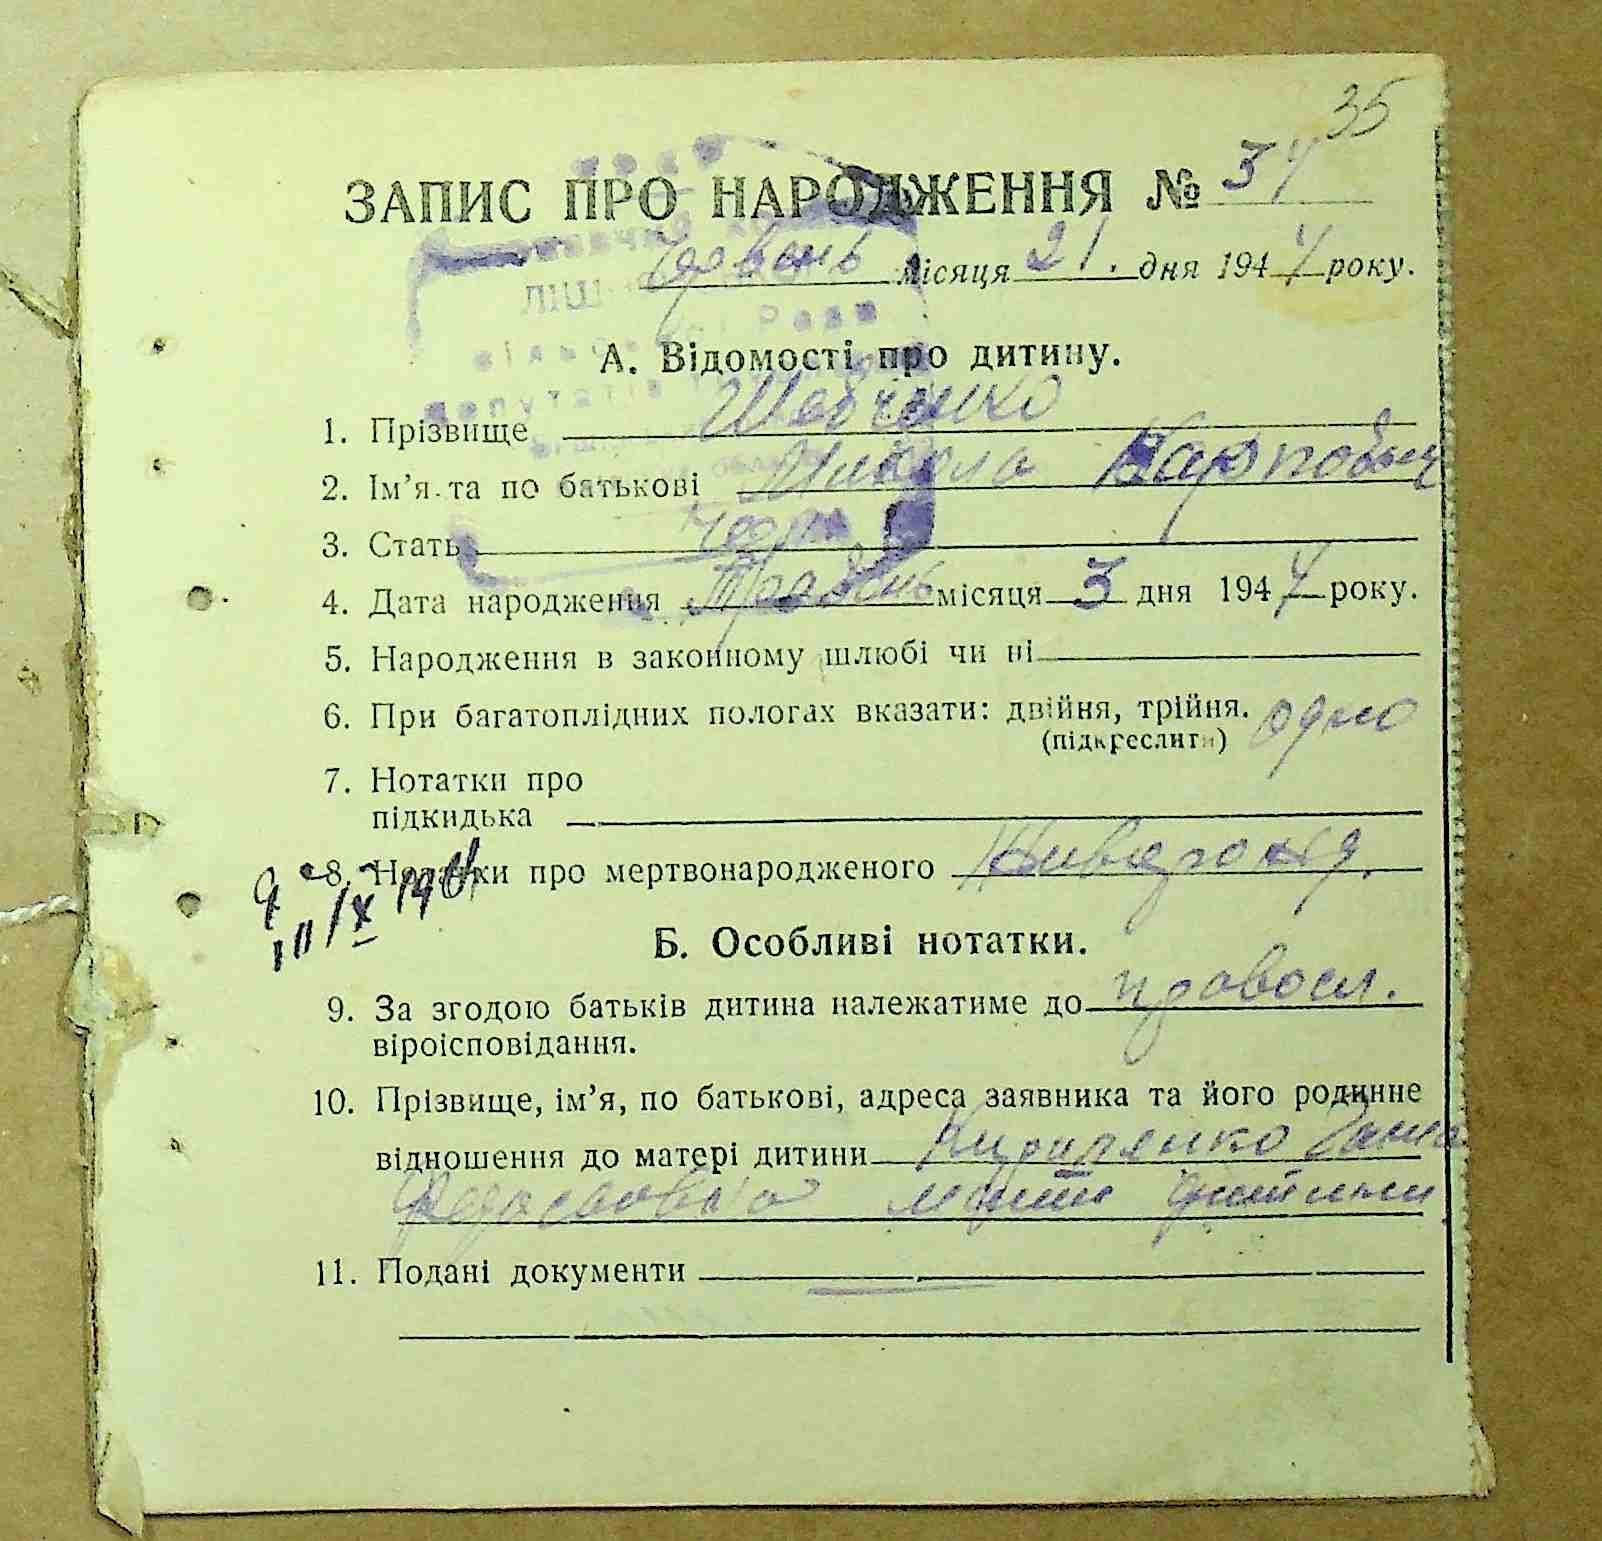 35
ЗАПИС ПРО НАРОДЖЕННЯ № 34
Червень місяця 21. дня 1944 року.
А. Відомості про дитину.
1. Прізвище Шевченко
2. Ім’я та по батькові Микола Карпович
3. Стать чол.
4. Дата народження Травень місяця 3 дня 1944 року.
5. Народження в законному шлюбі чи ні
6. При багатоплідних пологах вказати: двійня, трійня. одно
(підкреслити)
7. Нотатки про
підкидька
8. Нотатки про мертвонародженого
Б. Особливі нотатки.
9. За згодою батьків дитина належатиме до правосл.
віроісповідання.
10. Прізвище, ім’я, по батькові, адреса заявника та його родинне
відношення до матері дитини
мати дитини
11. Подані документи